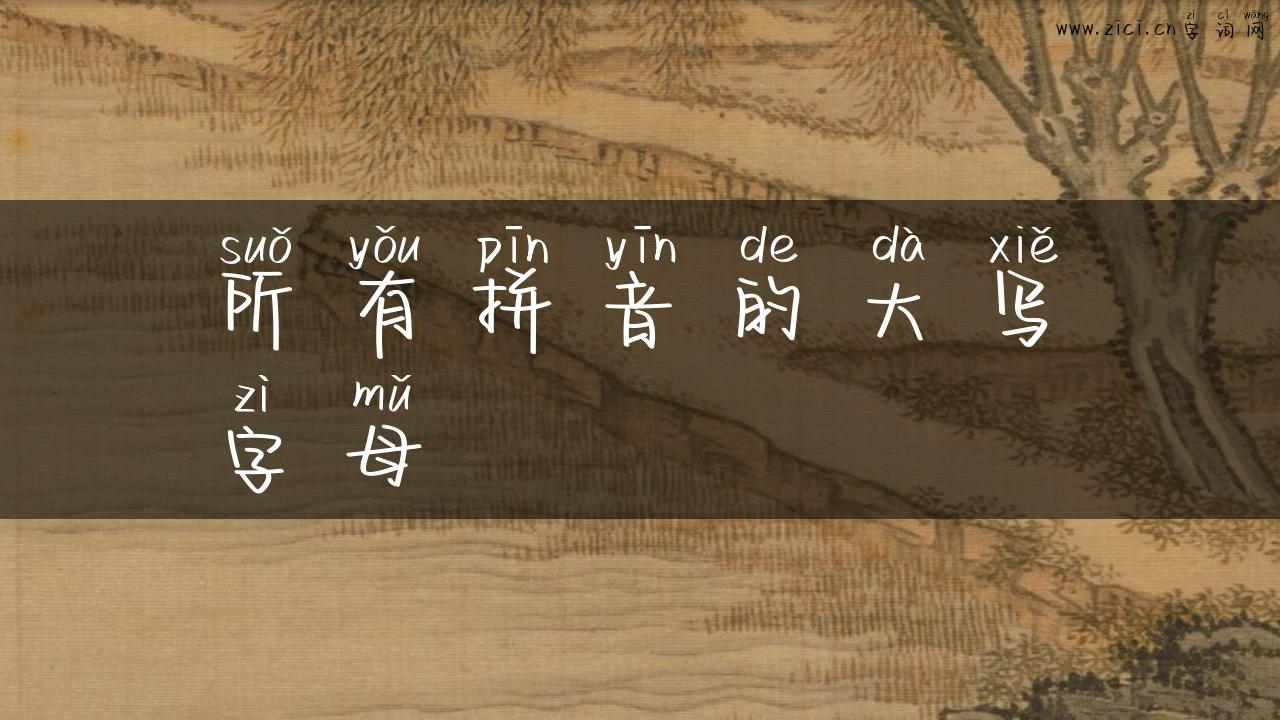 zì cí wǎng
www.zici.cn字词网
suǒ yǒu pīn yīn de dà xiě
所有拼音的大写
zì mǔ
字母